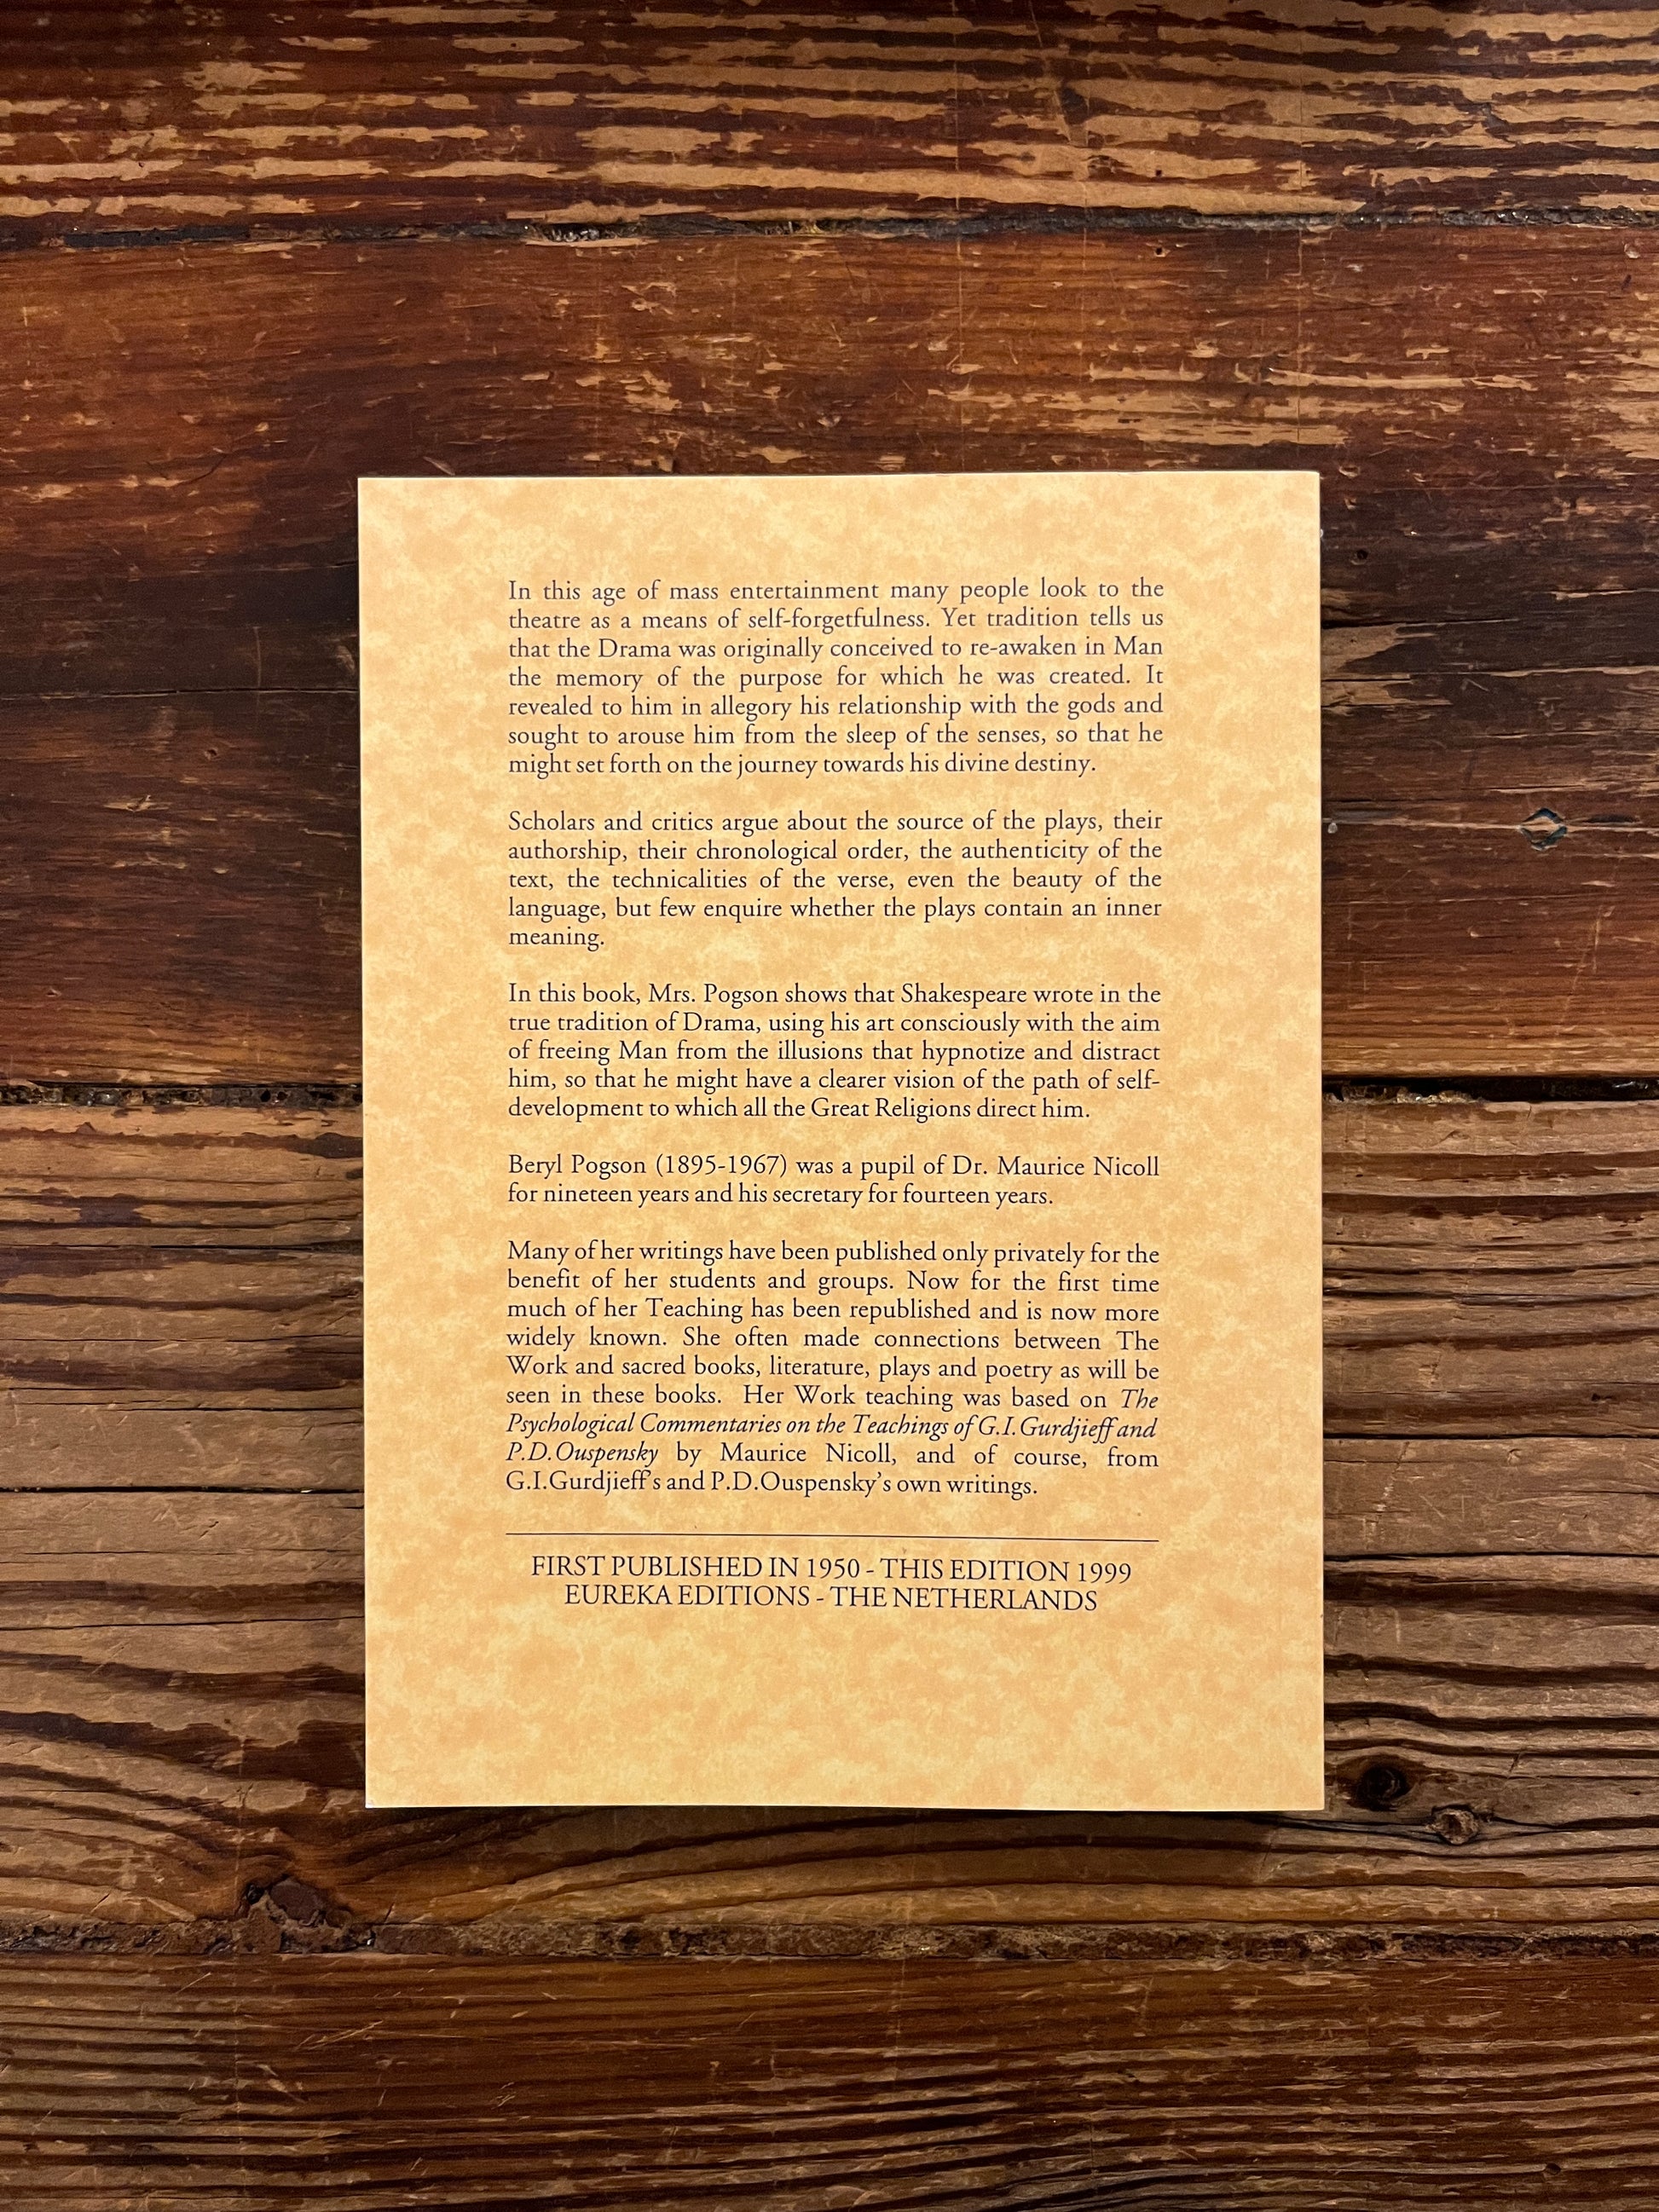 In this age of mass entertainment many people look to the
theatre as a means of self-forgetfulness. Yet tradition tells us
that the Drama was originally conceived to re-awaken in Man
the memory of the purpose for which he was created. It
revealed to him in allegory his relationship with the gods and
sought to arouse him from the sleep of the senses, so that he
might set forth on the journey towards his divine destiny.
Scholars and critics argue about the source of the plays, their
authorship, their chronological order, the authenticity of the
text, the technicalities of the verse, even the beauty of the
language, but few enquire whether the plays contain an inner
meaning.
In this book, Mrs. Pogson shows that Shakespeare wrote in the
true tradition of Drama, using his art consciously with the aim
of freeing Man from the illusions that hypnotize and distract
him, so that he might have a clearer vision of the path of self-
development to which all the Great Religions direct him.
Beryl Pogson (1895-1967) was a pupil of Dr. Maurice Nicoll
for nineteen years and his secretary for fourteen years.
Many of her writings have been published only privately for the
benefit of her students and groups. Now for the first time
much of her Teaching has been republished and is now more
widely known. She often made connections between The
Work and sacred books, literature, plays and poetry as will be
seen in these books. Her Work teaching was based on The
Psychological Commentaries on the Teachings of G.I.Gurdjieff and
P.D.Ouspensky by Maurice Nicoll, and of course, from
G.I.Gurdjieff's and P.D.Ouspensky's own writings.
FIRST PUBLISHED IN 1950 - THIS EDITION 1999
EUREKA EDITIONS - THE NETHERLANDS